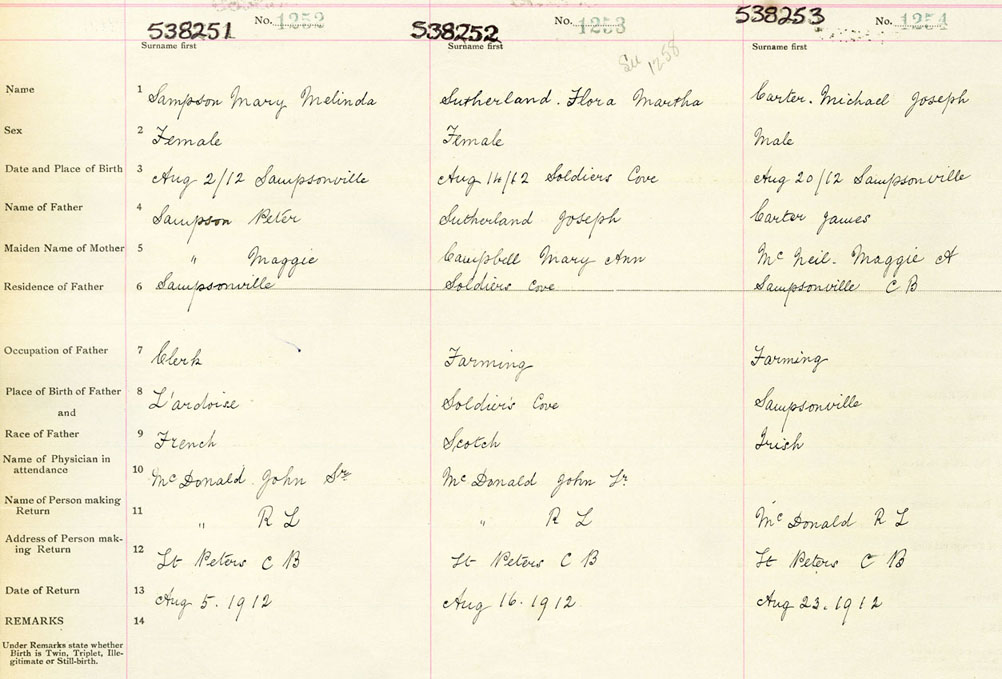 538251 No. 1252 538252 No. 1253 538253 No. 1254
Surname first Surname first Surname first
See 1258
Name 1 Sampson Mary Melinda Sutherland. Flora Martha Carter. Michael Joseph
Sex 2 Female Female Male
Date and Place of Birth 3 Aug 2/12 Sampsonville Aug 14/12 Soldiers Cove Aug 20/12 Sampsonville
Name of Father 4 Sampson Peter Sutherland Joseph Carter James
Maiden Name of Mother 5 " Maggie Campbell Mary Ann Mc Neil. Maggie A
Residence of Father 6 Sampsonville Soldiers Cove Sampsonville C B
Occupation of Father 7 Clerk Farming Farming
Place of Birth of Father 8 L'ardoise Soldier's Cove Sampsonville
and
Race of Father 9 French Scotch Irish
Name of Physician in
attendance 10 Mc Donald John Sr. Mc Donald John Sr.
Name of Person making
Return 11 " R L " R L Mc Donald R L
Address of Person mak-
ing Return 12 St Peters C B St Peters C B St Peters C B
Date of Return 13 Aug 5. 1912 Aug 16. 1912 Aug 23. 1912
REMARKS 14
Under Remarks state whether
Birth is Twin, Triplet, Ille-
gitimate or Still-birth.